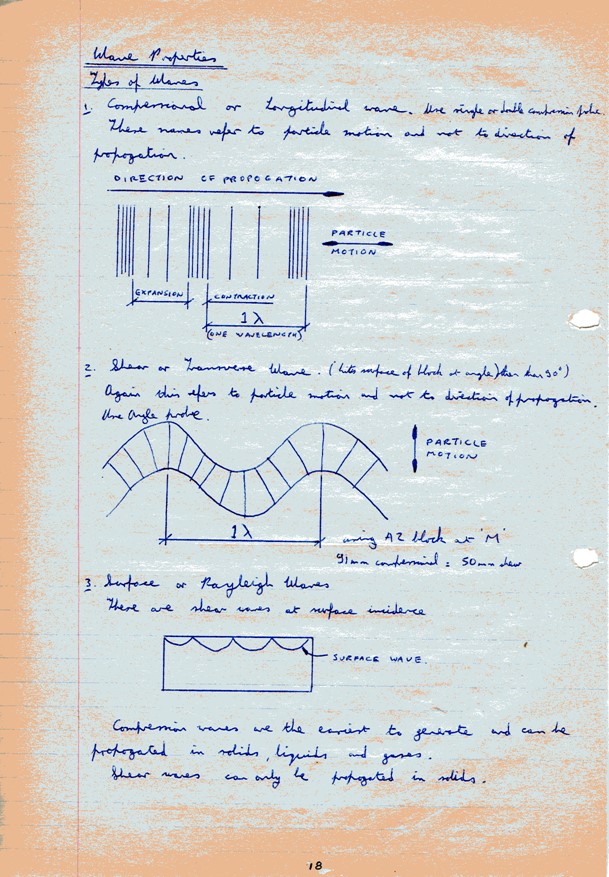 Wave Properties
Types of Waves
1. Compessional or Longitudinal wave. Use single or double compression probe.
These names refer to particle motion and not to direction of
propogation.
DIRECTION OF PROPOGATION
PARTICLE
MOTION
EXPANSION
CONTRACTION
1λ
(ONE WAVELENGTH)
2. Shear or Transverse Wave. (hits surface of block at angle) than 90°)
Again this refers to particle motion and not to direction of propogation.
Use Angle probe.
PARTICLE
MOTION
1λ
using A2 block at 'M'
91mm compressional = 50mm shear
3. Surface or Rayleigh Waves
These are shear waves at surface incidence
SURFACE WAVE.
Compression waves are the easiest to generate and can be
propogated in solids, liquids and gases.
Shear waves can only be propogated in solids.
18